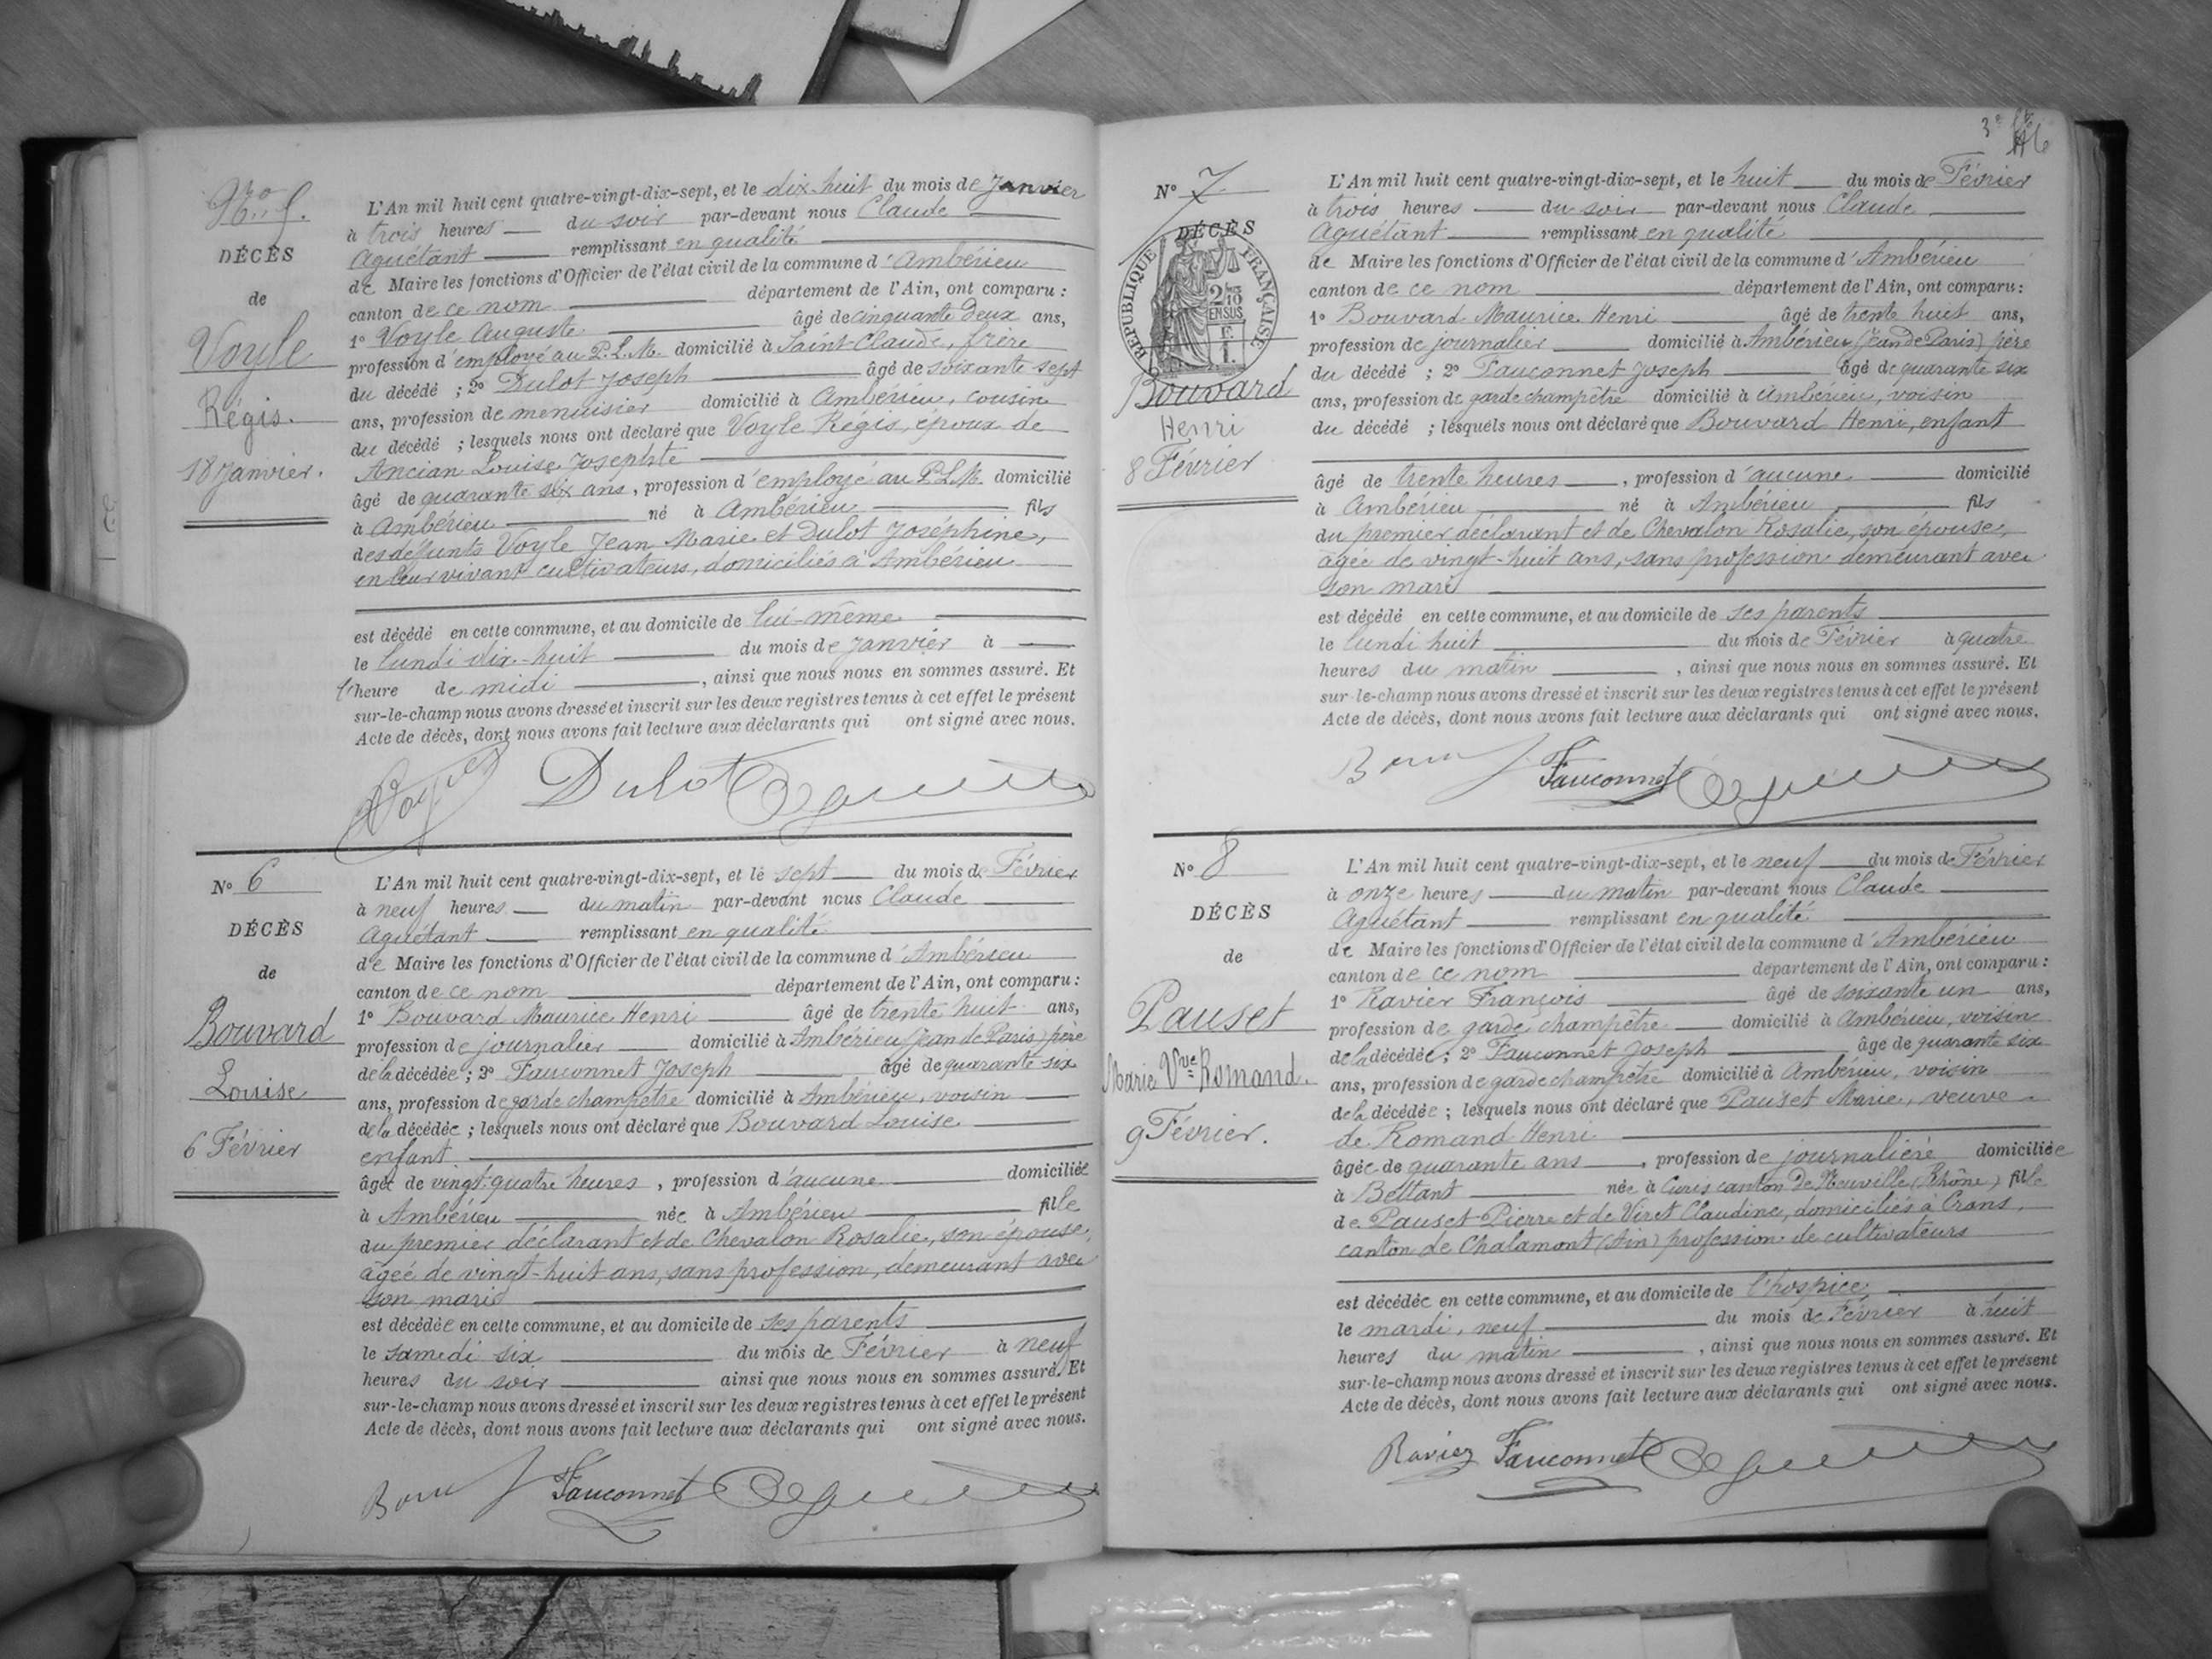 No 5.
DÉCÈS
de
Voyle
Régis.
18 Janvier.
L'An mil huit cent quatre-vingt-dix-sept, et le dix-huit du mois de Janvier
à trois heures — du soir par-devant nous Claude
Aguétant remplissant en qualité
de Maire les fonctions d'Officier de l'état civil de la commune d'Ambérieu
canton de ce nom département de l'Ain, ont comparu :
1º Voyle Auguste âgé de cinquante deux ans,
profession d'employé au P.L.M. domicilié à Saint-Claude, frère
du décédé ; 2º Dulot Joseph âgé de soixante sept
ans, profession de menuisier domicilié à Ambérieu, cousin
du décédé ; lesquels nous ont déclaré que Voyle Régis, époux de
Ancian Louise Josephte
âgé de quarante six ans, profession d'employé au P.L.M. domicilié
à Ambérieu né à Ambérieu fils
des défunts Voyle Jean Marie et Dulot Joséphine,
en leur vivant cultivateurs, domiciliés à Ambérieu
est décédé en cette commune, et au domicile de lui-même
le lundi dix-huit du mois de Janvier à
l'heure de midi, ainsi que nous nous en sommes assuré. Et
sur-le-champ nous avons dressé et inscrit sur les deux registres tenus à cet effet le présent
Acte de décès, dont nous avons fait lecture aux déclarants qui ont signé avec nous.
Dulot
Nº 6
DÉCÈS
de
Bouvard
Louise
6 Février
L'An mil huit cent quatre-vingt-dix-sept, et le sept du mois de Février
à neuf heures — du matin par-devant nous Claude
Aguétant remplissant en qualité
de Maire les fonctions d'Officier de l'état civil de la commune d'Ambérieu
canton de ce nom département de l'Ain, ont comparu :
1º Bouvard Maurice Henri âgé de trente huit ans,
profession de journalier domicilié à Ambérieu (Jean de Paris) père
de la décédée ; 2º Fauconnet Joseph âgé de quarante six
ans, profession de garde champêtre domicilié à Ambérieu, voisin
de la décédée ; lesquels nous ont déclaré que Bouvard Louise
enfant
âgée de vingt-quatre heures, profession d'aucune domiciliée
à Ambérieu née à Ambérieu fille
du premier déclarant et de Chevalon Rosalie, son épouse,
agée de vingt-huit ans, sans profession, demeurant avec
son mari
est décédée en cette commune, et au domicile de ses parents
le samedi six du mois de Février à neuf
heures du soir ainsi que nous nous en sommes assuré. Et
sur-le-champ nous avons dressé et inscrit sur les deux registres tenus à cet effet le présent
Acte de décès, dont nous avons fait lecture aux déclarants qui ont signé avec nous.
Fauconnet
3e
Nº 7
DÉCÈS
RÉPUBLIQUE FRANÇAISE
2/10 EN SUS
Bouvard
Henri
8 Février
L'An mil huit cent quatre-vingt-dix-sept, et le huit du mois de Février
à trois heures — du soir par-devant nous Claude
Aguétant remplissant en qualité
de Maire les fonctions d'Officier de l'état civil de la commune d'Ambérieu
canton de ce nom département de l'Ain, ont comparu :
1º Bouvard Maurice Henri âgé de trente huit ans,
profession de journalier domicilié à Ambérieu (Jean de Paris) père
du décédé ; 2º Fauconnet Joseph âgé de quarante six
ans, profession de garde champêtre domicilié à Ambérieu, voisin
du décédé ; lesquels nous ont déclaré que Bouvard Henri, enfant
âgé de trente heures, profession d'aucune domicilié
à Ambérieu né à Ambérieu fils
du premier déclarant et de Chevalon Rosalie, son épouse,
agée de vingt-huit ans, sans profession demeurant avec
son mari
est décédé en cette commune, et au domicile de ses parents
le lundi huit du mois de Février à quatre
heures du matin, ainsi que nous nous en sommes assuré. Et
sur-le-champ nous avons dressé et inscrit sur les deux registres tenus à cet effet le présent
Acte de décès, dont nous avons fait lecture aux déclarants qui ont signé avec nous.
Fauconnet
Nº 8
DÉCÈS
de
Pauset
Marie Vve Romand.
9 Février.
L'An mil huit cent quatre-vingt-dix-sept, et le neuf du mois de Février
à onze heures — du matin par-devant nous Claude
Aguétant remplissant en qualité
de Maire les fonctions d'Officier de l'état civil de la commune d'Ambérieu
canton de ce nom département de l'Ain, ont comparu :
1º Ravier François âgé de soixante un ans,
profession de garde champêtre domicilié à Ambérieu, voisin
de la décédée ; 2º Fauconnet Joseph âgé de quarante six
ans, profession de garde champêtre domicilié à Ambérieu, voisin
de la décédée ; lesquels nous ont déclaré que Pauset Marie, veuve
de Romand Henri
âgée de quarante ans, profession de journalière domiciliée
à Bettant née à Curis canton de Neuville (Rhône) fille
de Pauset Pierre et de Viret Claudine, domiciliés à Crans,
canton de Chalamont (Ain) profession de cultivateurs
est décédée en cette commune, et au domicile de l'hospice,
le mardi, neuf du mois de Février à huit
heures du matin, ainsi que nous nous en sommes assuré. Et
sur-le-champ nous avons dressé et inscrit sur les deux registres tenus à cet effet le présent
Acte de décès, dont nous avons fait lecture aux déclarants qui ont signé avec nous.
Ravier Fauconnet